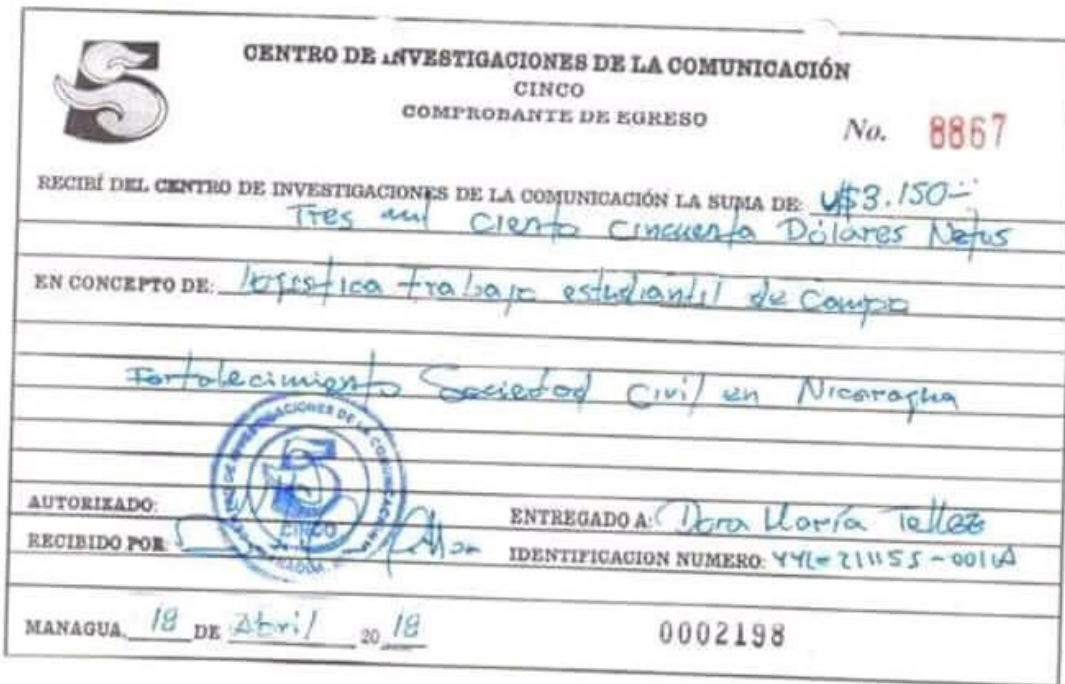 CENTRO DE INVESTIGACIONES DE LA COMUNICACIÓN
CINCO
COMPROBANTE DE EGRESO
No. 8867
RECIBÍ DEL CENTRO DE INVESTIGACIONES DE LA COMUNICACIÓN LA SUMA DE: U$3.150
Tres mil Ciento Cincuenta Dólares Netos
EN CONCEPTO DE: logística trabajo estudiantil de Campo
Fortalecimiento Sociedad Civil en Nicaragua
AUTORIZADO:
ENTREGADO A: Dora María Tellez
RECIBIDO POR
IDENTIFICACION NUMERO: 441-211155-0011A
MANAGUA, 18 DE Abril 20 18
0002198